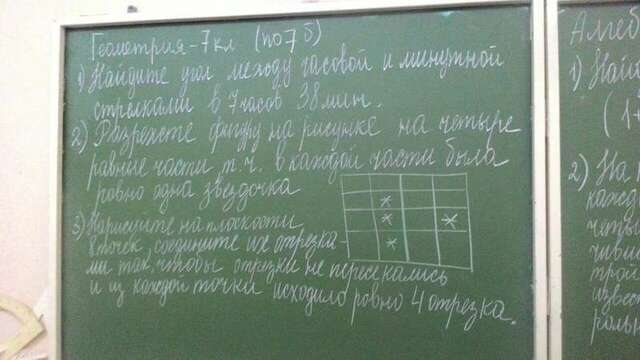 Геометрия - 7 кл (по 7 б)
1) Найдите угол между часовой и минутной
стрелками в 7 часов 38 мин.
2) Разрежьте фигуру на рисунке на четыре
равные части т.ч. в каждой части была
ровно одна звёздочка
3) Нарисуйте на плоскости
8 точек, соедините их отрезка-
ми так, чтобы отрезки не пересекались
и из каждой точки исходило ровно 4 отрезка.
Алгеб
1) Най
(1-
2) На
каждо
четы